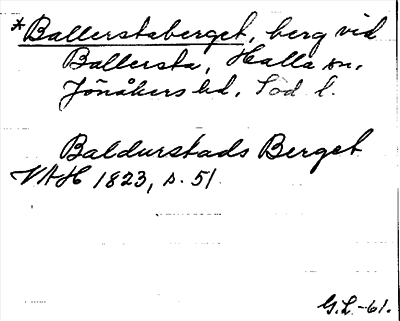 *Ballerstaberget, berg vid
Ballersta, Halla sn,
Jönåkers hd, Söd l.
Baldurstads Berget
VAH 1823, s. 51
G.L.-61.